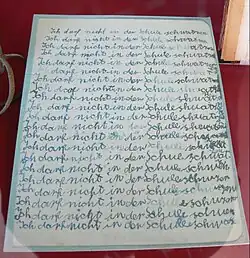 Ich darf nicht in der Schule schwatzen
Ich darf nicht in der Schule schwatzen
Ich darf nicht in der Schule schwatzen
Ich darf nicht in der Schule schwatzen
Ich darf nicht in der Schule schwatzen
darf nicht in der Schule schwatzen
Ich darf nicht in der Schule schwatzen
Ich darf nicht in der Schule schwatzen
Ich darf nicht in der Schule schwatzen
Ich darf nicht in der Schule schwatz
Ich darf nicht in der Schule schwatz
Ich darf nicht in der Schule
Ich darf nicht in der Schule
Ich darf nicht in der Schule schwat
Ich darf nicht in der Schule
Ich darf nicht in der Schule schwat
Ich darf nicht in der Schule
Ich darf nicht in der Schule
Ich darf nicht in der Schule
Ich darf nicht in der Schule